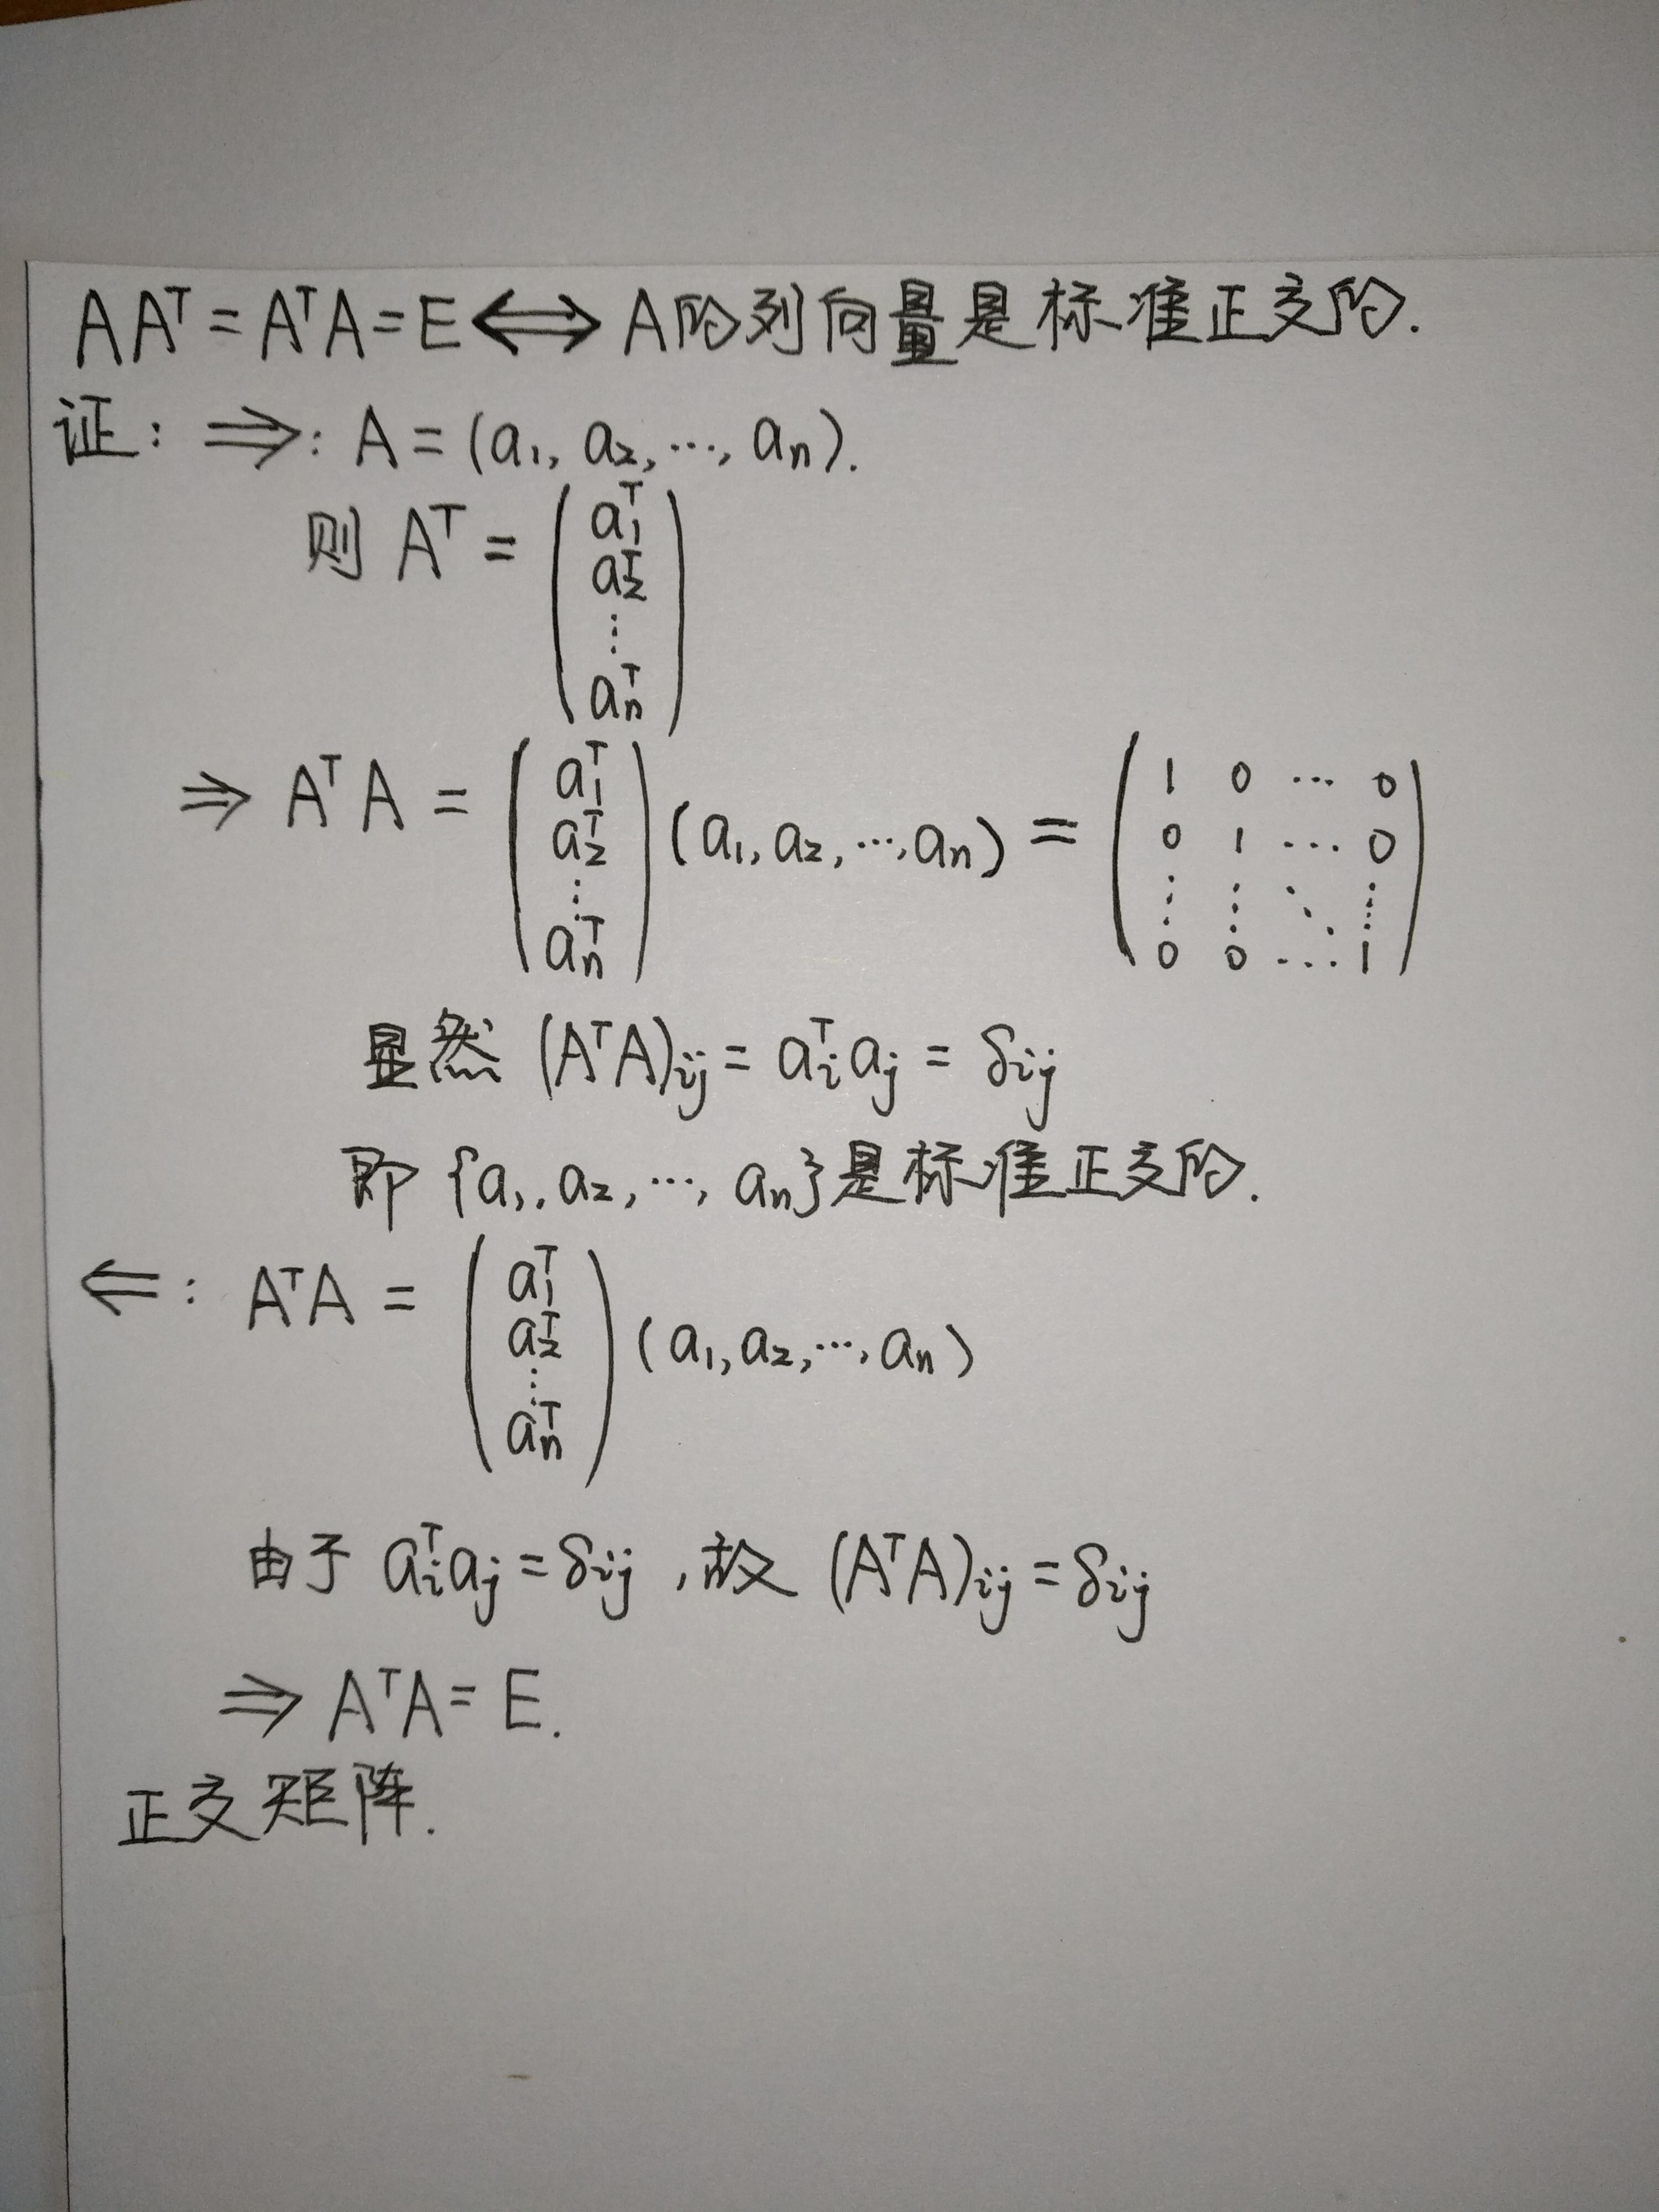 AAᵀ = AᵀA = E ⟺ A的列向量是标准正交的.
证: ⇒: A = (a₁, a₂, ⋯, aₙ).
则 Aᵀ = (a₁ᵀ a₂ᵀ ⋮ aₙᵀ)
⇒ AᵀA = (a₁ᵀ a₂ᵀ ⋮ aₙᵀ) (a₁, a₂, ⋯, aₙ) = (1 0 ⋯ 0 0 1 ⋯ 0 ⋮ ⋮ ⋱ ⋮ 0 0 ⋯ 1)
显然 (AᵀA)ij = aᵢᵀaⱼ = δij
即 {a₁, a₂, ⋯, aₙ}是标准正交的.
⇐: AᵀA = (a₁ᵀ a₂ᵀ ⋮ aₙᵀ) (a₁, a₂, ⋯, aₙ)
由于 aᵢᵀaⱼ = δij , 故 (AᵀA)ij = δij
⇒ AᵀA = E.
正交矩阵.